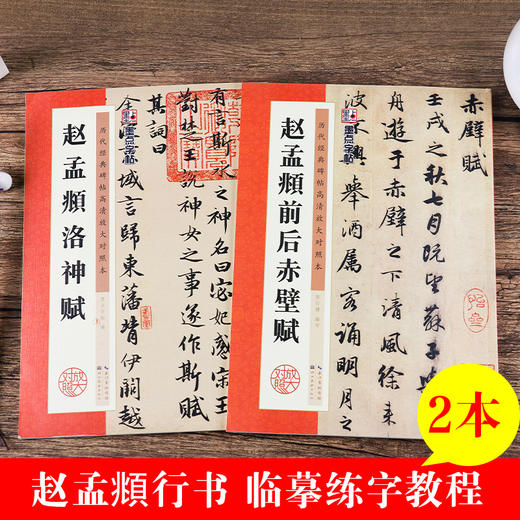 墨点字帖
历代经典碑帖高清放大对照本
赵孟頫洛神赋
放大对照
有言斯水之神名曰宓妃感宋玉
對楚王說神女之事遂作斯賦
其詞曰
域言歸東藩背伊闕越
墨点字帖
历代经典碑帖高清放大对照本
赵孟頫前后赤壁赋
放大对照
赤壁賦
壬戌之秋七月既望蘇子與
舟遊于赤壁之下清風徐来
波不興舉酒属客誦明月之
2本
赵孟頫行书 临摹练字教程